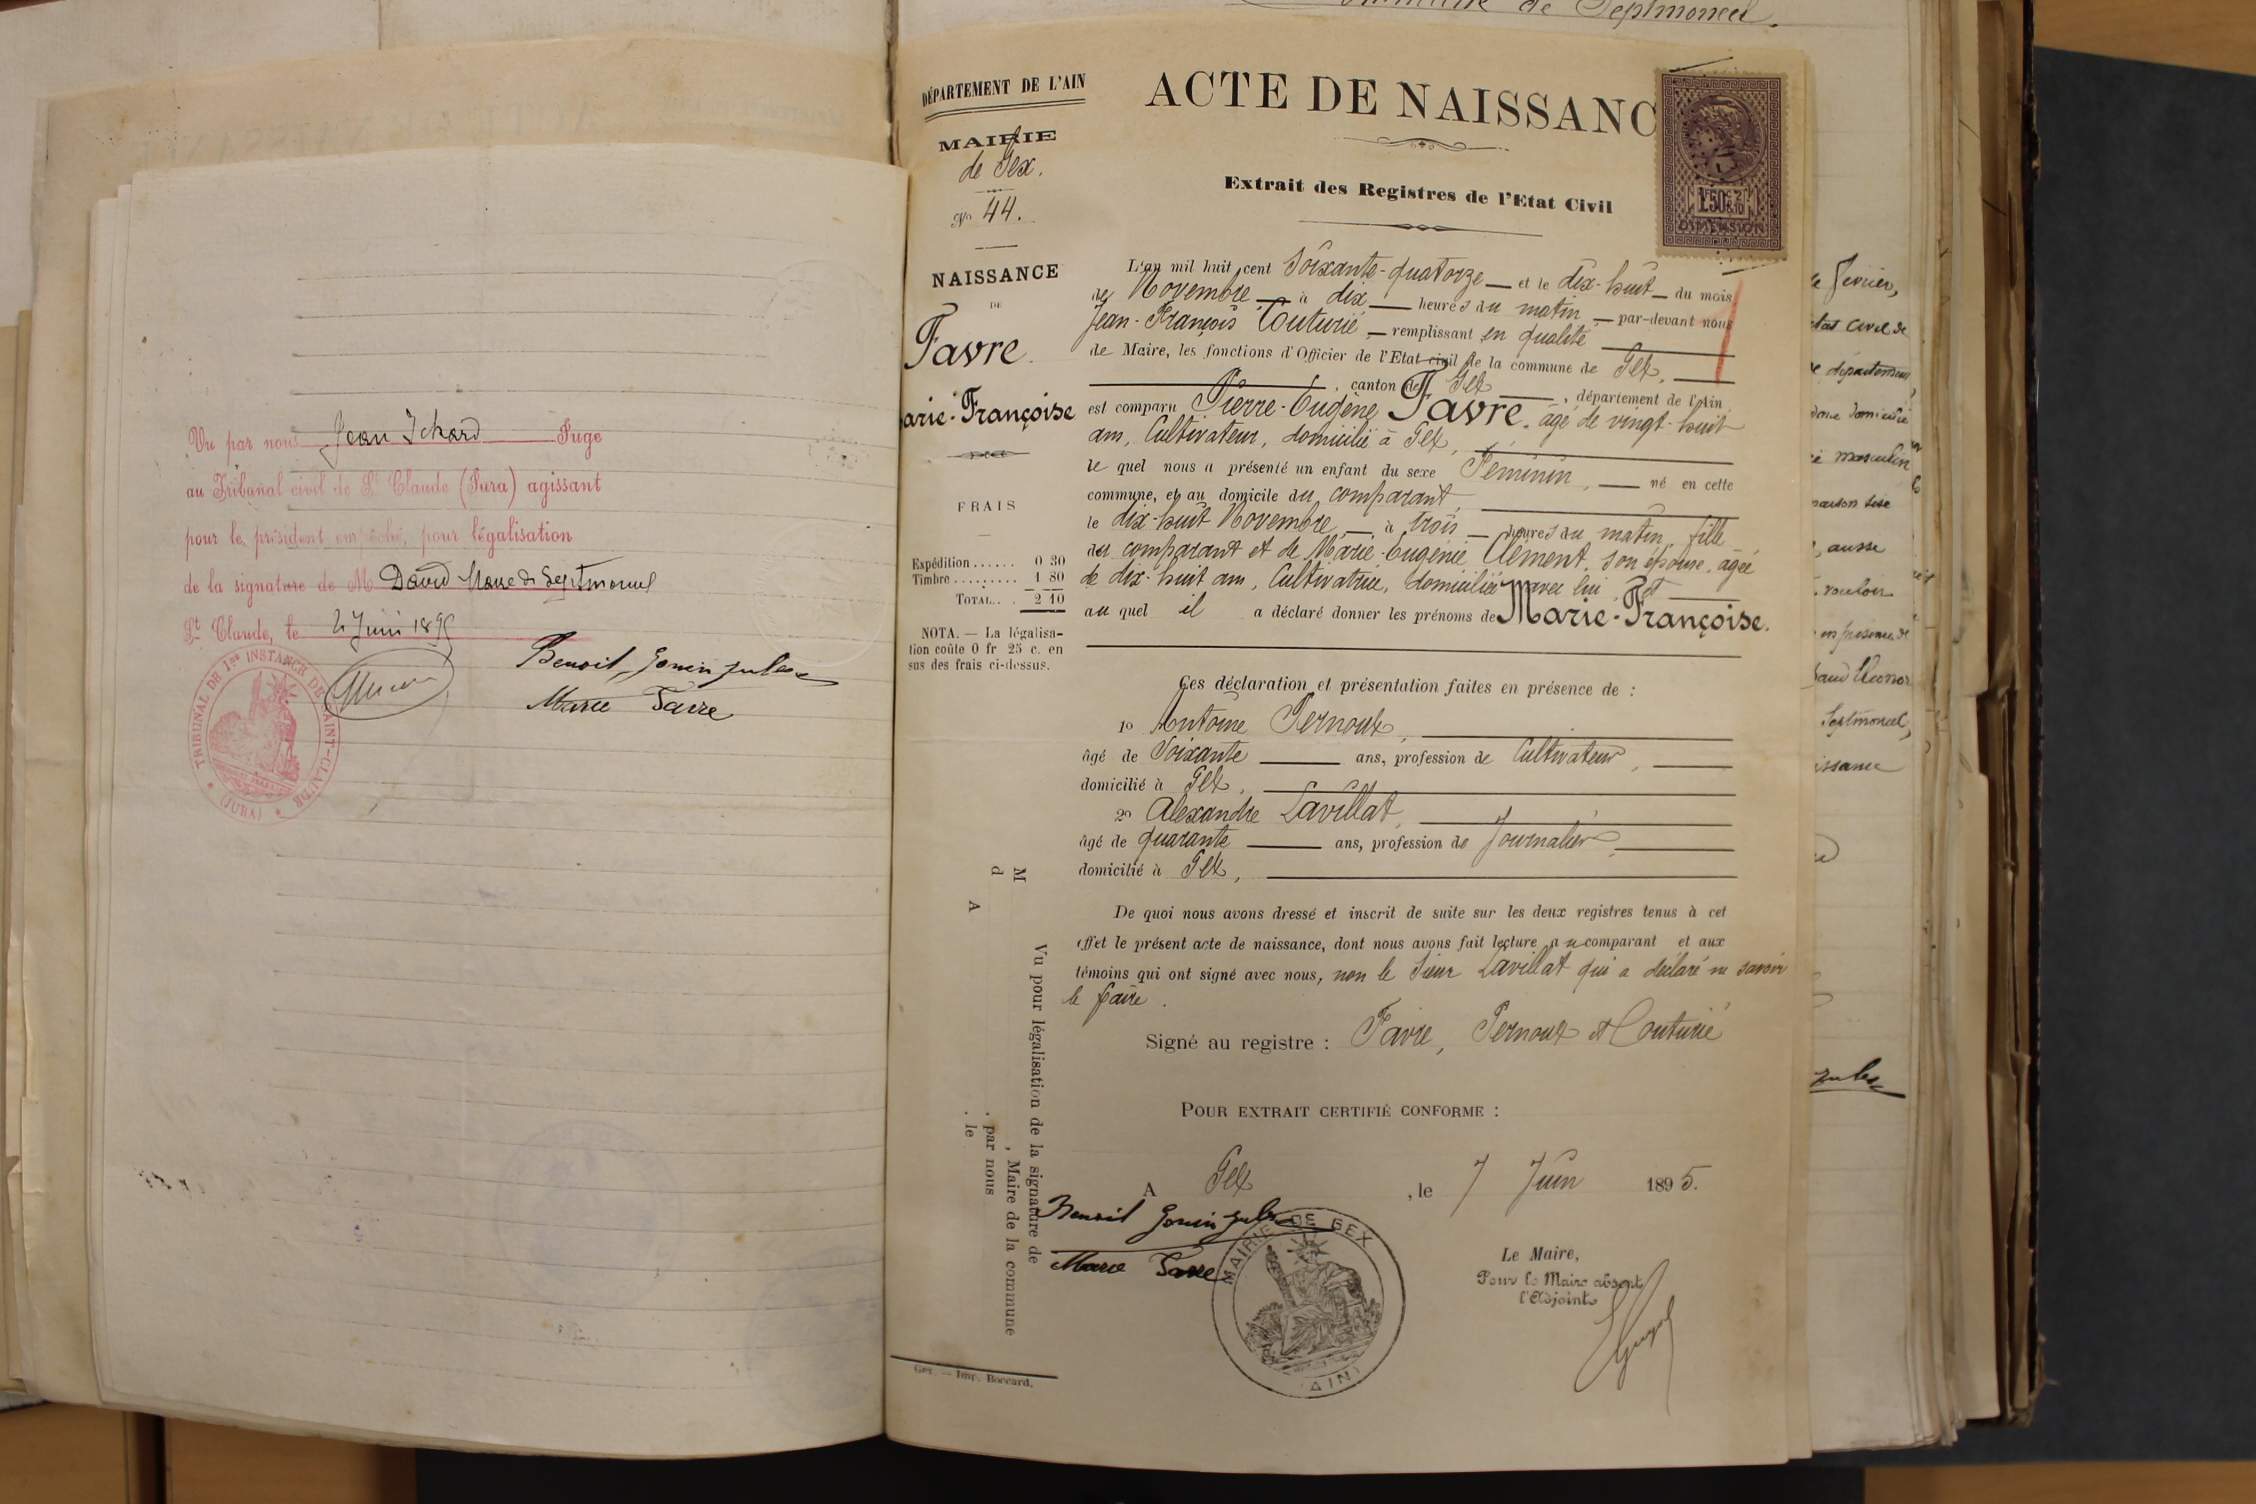 Vu par nous Jean Ichard Juge
au Tribunal civil de St Claude (Jura) agissant
pour le président empêché, pour légalisation
de la signature de M David Maire de Septmoncel
St Claude, le 24 Juin 1895
Benoit-Gonin Jules
Marie Favre
TRIBUNAL DE 1re INSTANCE DE SAINT-CLAUDE
(JURA)
Commune de Septmoncel.
DÉPARTEMENT DE L'AIN
MAIRIE
de Gex.
No 44.
NAISSANCE
DE
Favre
arie-Françoise
FRAIS
Expédition...... 0 30
Timbre......... 1 80
TOTAL... 2 10
NOTA. — La légalisa-
tion coûte 0 fr 25 c. en
sus des frais ci-dessus.
M
d
A
Vu pour légalisation de la signature de
, Maire de la commune
. par nous
. le
Gex. — Imp. Boccard.
ACTE DE NAISSANC
Extrait des Registres de l'Etat Civil
1F50c 2/10
DIMENSION
L'an mil huit cent Soixante-quatorze — et le dix-huit — du mois
de Novembre — à dix — heures du matin — par-devant nous
Jean-François Couturié — remplissant en qualité
de Maire, les fonctions d'Officier de l'Etat civil de la commune de Gex,
, canton de Gex — , département de l'Ain
est comparu Pierre-Eugène Favre, âgé de vingt-huit
ans, Cultivateur, domicilié à Gex,
le quel nous a présenté un enfant du sexe Féminin, — né en cette
commune, et au domicile du comparant,
le dix-huit Novembre — à trois — heures du matin, fille
du comparant et de Marie-Eugénie Clément, son épouse, âgée
de dix-huit ans, Cultivatrice, domiciliée avec lui, et
au quel il a déclaré donner les prénoms de Marie-Françoise.
Ces déclaration et présentation faites en présence de :
1o Antoine Pernoux,
âgé de Soixante — ans, profession de Cultivateur,
domicilié à Gex,
2o Alexandre Lavillat,
âgé de quarante — ans, profession de Journalier,
domicilié à Gex,
De quoi nous avons dressé et inscrit de suite sur les deux registres tenus à cet
effet le présent acte de naissance, dont nous avons fait lecture au comparant et aux
témoins qui ont signé avec nous, non le Sieur Lavillat qui a déclaré ne savoir
le faire.
Signé au registre : Favre, Pernoux et Couturié
POUR EXTRAIT CERTIFIÉ CONFORME :
A Gex , le 7 Juin 1895.
Benoit Gonin Jules
Marie Favre
MAIRIE DE GEX
(AIN)
Le Maire,
Pour le Maire absent
l'Adjoint
le Fevrier,
etat civil de
departement
domicilié
masculin
maison sise
, aussi
vouloir
en présence de
Septmoncel,
issance
Jules